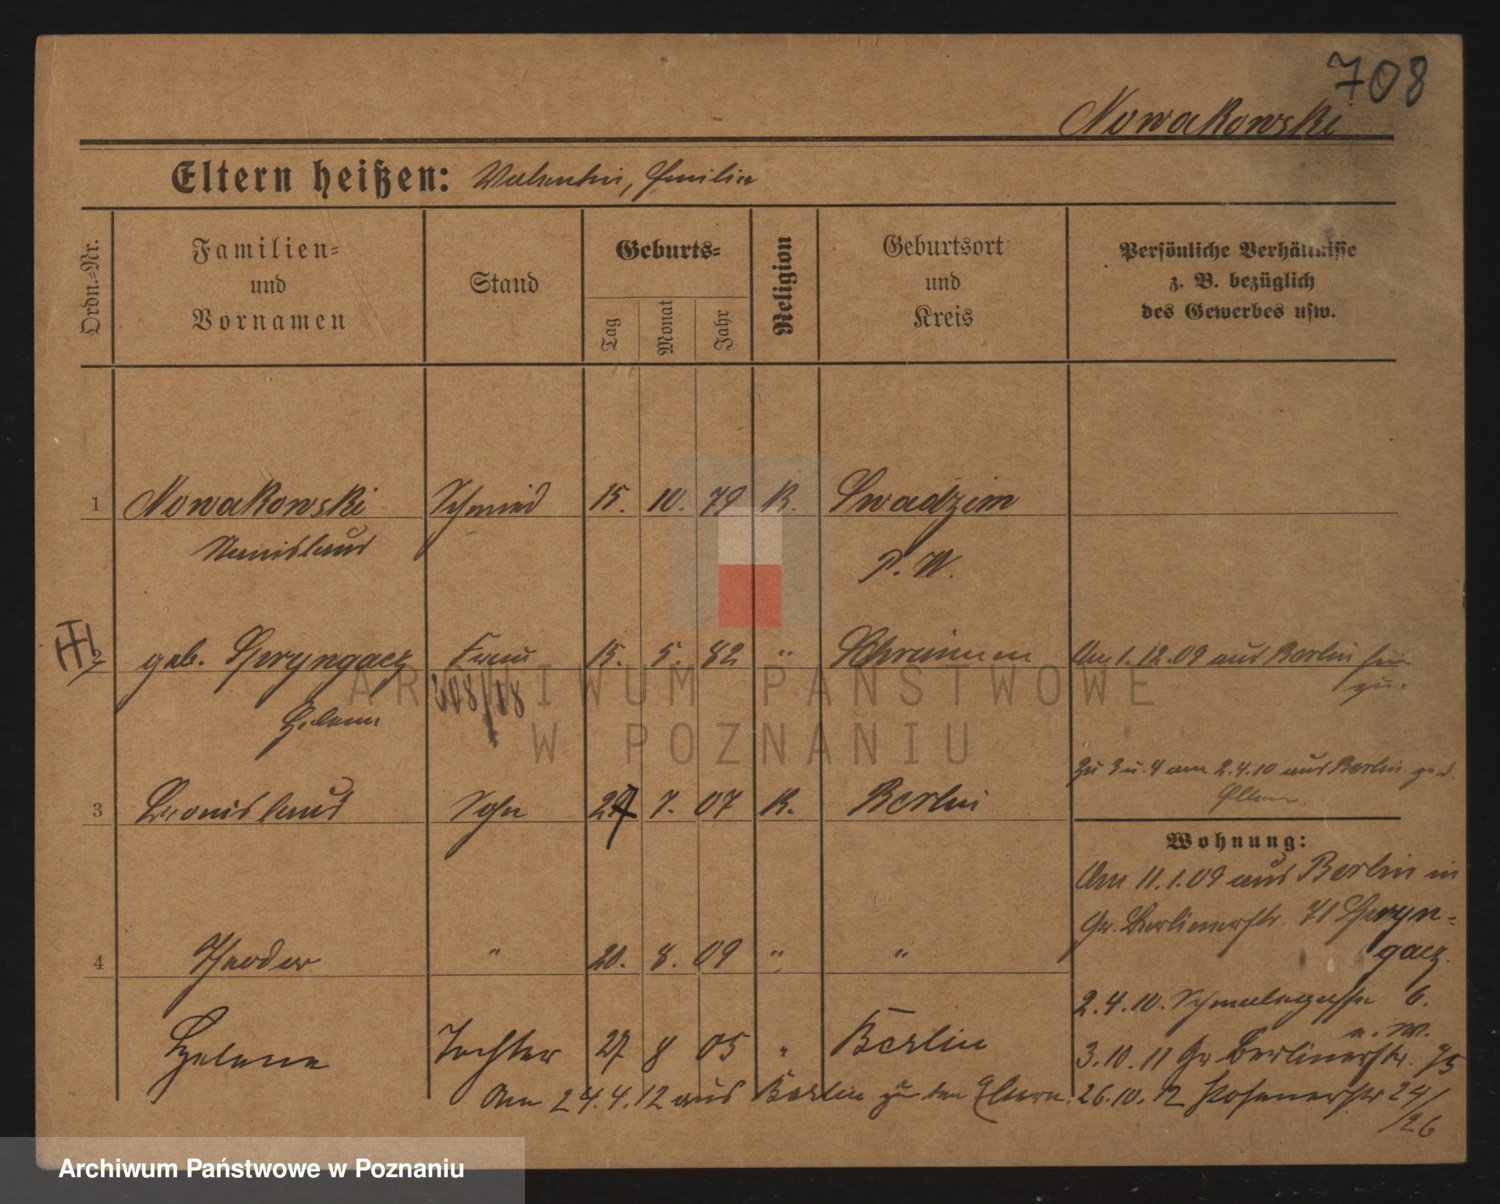 708
Nowakowski
Eltern heißen: Valentin, Emilia
Ordn.-Nr.
Familien-
und
Vornamen
Stand
Geburts-
Tag
Monat
Jahr
Religion
Geburtsort
und
Kreis
Persönliche Verhältnisse
z. B. bezüglich
des Gewerbes usw.
1 Nowakowski Schmied 15. 10. 79 K. Swadzim
Stanislaus P. W.
2 geb. Spryngacz Frau 15. 5. 82 " Schrimm Am 1.12.09 aus Berlin
zu.
Helena
3 Bronislaus Sohn 7. 07 K. Berlin
Zu 3 u. 4 am 2.4.10 aus Berlin
Wohnung:
Am 11.1.09 aus Berlin in
Gr. Berlinerstr. 71 Spryn-
gacz.
4 Theodor " 20. 8. 09 " "
2.4.10. Schmalegasse 6.
Helene Tochter 27 8 05 " Berlin
3.10.11 Gr Berlinerstr. 75
Am 24.4.12 aus Berlin zu den Eltern.
26.10.12 Posenerstr 24/
26
ARCHIWUM PAŃSTWOWE
W POZNANIU
Archiwum Państwowe w Poznaniu